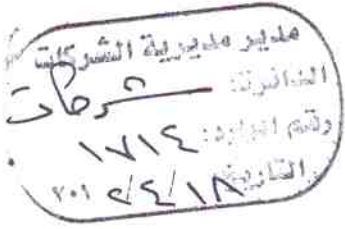 مدير مديرية الشركات
الدائرة: شركات
رقم الوارد: ١٧١٤
التاريخ: ١٨/٤/ ٢٠١